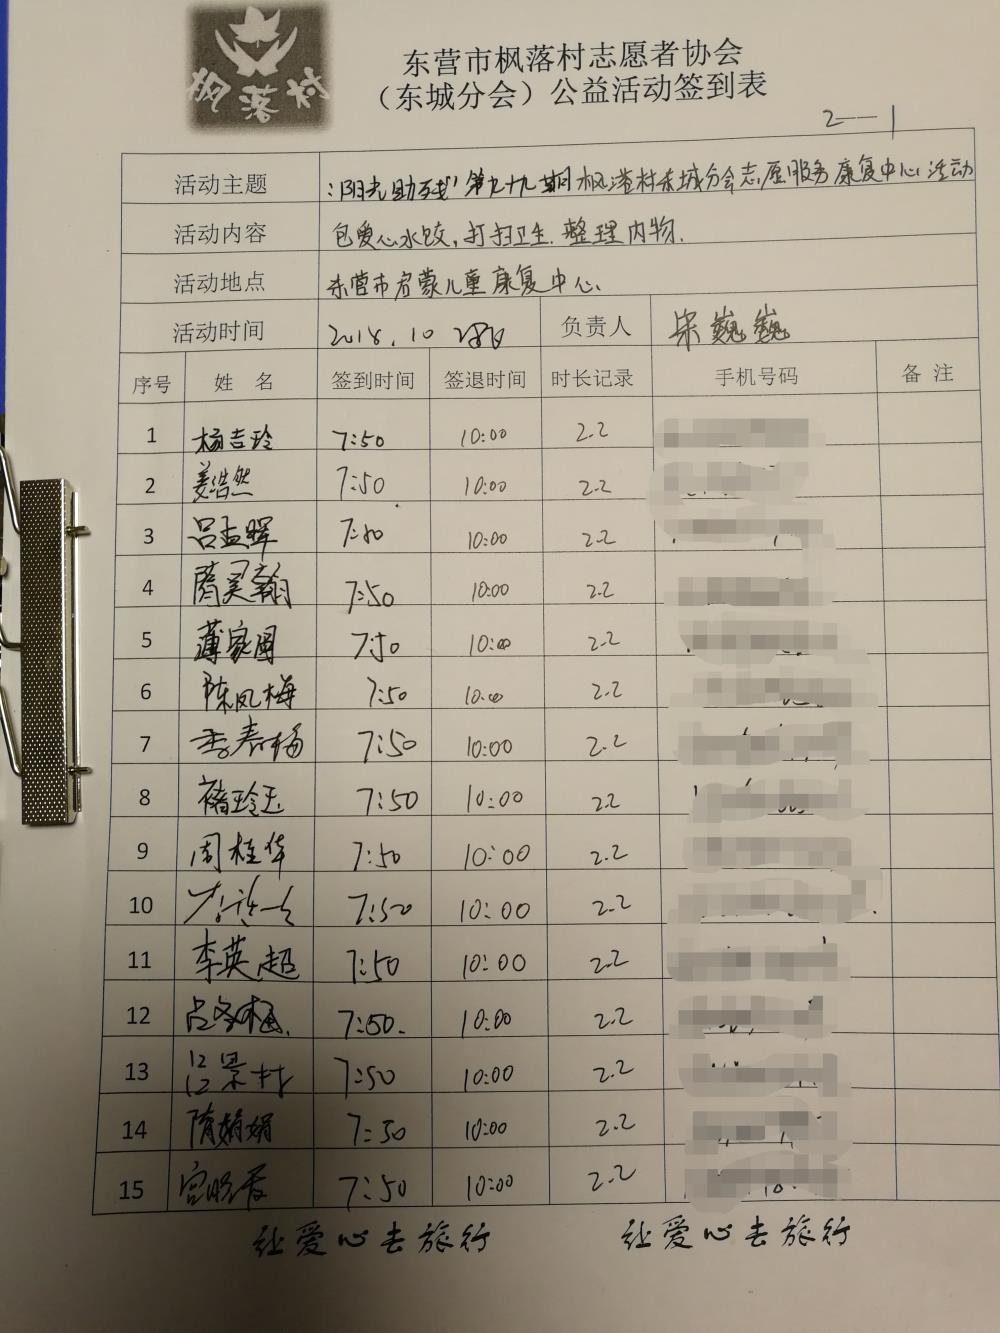 枫落村
东营市枫落村志愿者协会
（东城分会）公益活动签到表
2—1
活动主题 "阳光助残"第九十九期枫落村东城分会志愿服务康复中心活动
活动内容 包爱心水饺,打扫卫生.整理内物.
活动地点 东营市启蒙儿童康复中心.
活动时间 2018.10 28日 负责人 宋巍巍
序号 姓 名 签到时间 签退时间 时长记录 手机号码 备 注
1 杨吉玲 7:50 10:00 2.2
2 姜浩然 7:50 10:00 2.2
3 吕孟晖 7:50 10:00 2.2
4 7:50 10:00 2.2
5 薄家国 7:50 10:00 2.2
6 陈凤梅 7:50 10:00 2.2
7 李春梅 7:50 10:00 2.2
8 褚玲玉 7:50 10:00 2.2
9 周桂华 7:50 10:00 2.2
10 7:50 10:00 2.2
11 李英超 7:50 10:00 2.2
12 7:50. 10:00 2.2
13 7:50 10:00 2.2
14 隋娟娟 7:50 10:00 2.2
15 7:50 10:00 2.2
让爱心去旅行 让爱心去旅行